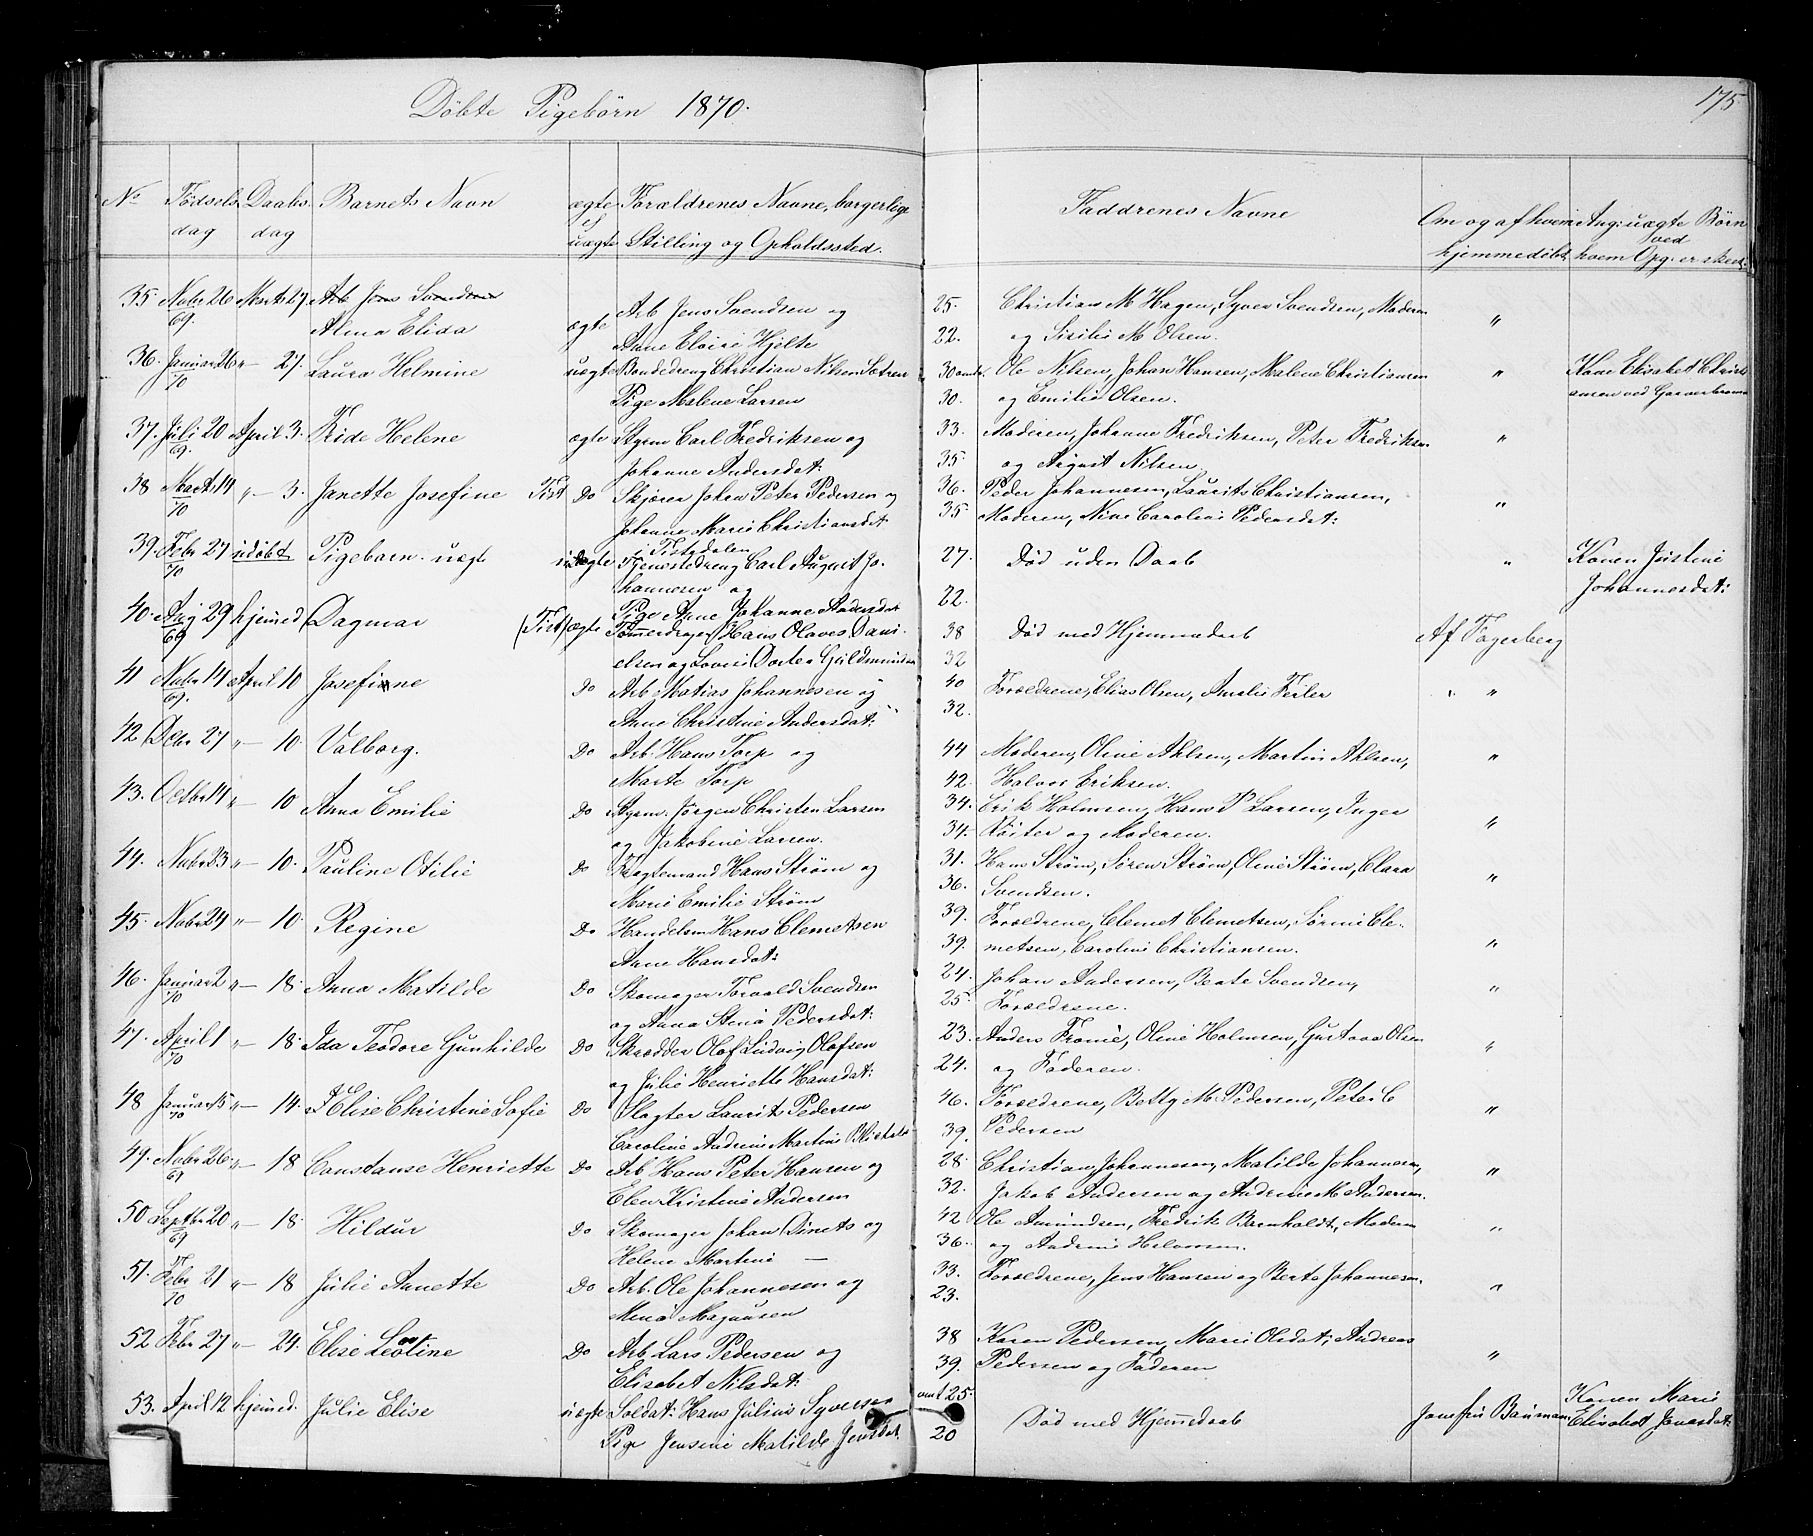 Døbte Pigebørn 1870.
175
No Fødsels dag Daabs dag Barnets Navn ægte el uægte Forældrenes Navne, borgerlige Stilling og Opholdssted. Faddrenes Navne Om og af hvem hjemmedøbt Ang: uægte Børn ved hvem Opg. er skeet.
35. Nvbr 26 Marts 27. Arb Jens Svendsen Arb Jens Svendsen og 25. Christian M Hagen, Syver Svendsen, Moderen "
69. Alma Elida ægte Anne Eloise Hjelte 22. og Sisilie M Olsen.
36. Januar 26 " 27. Laura Helmine uægte Bondedreng Christian Nilsen Sætren 30 Ole Nilsen, Johan Hansen, Malene Christiansen " Kone Elisabet Christi
70 Pige Malene Larsen 30. og Emilie Olsen. ansen ved
37. Juli 20 April 3. Fride Helene ægte Styrm Carl Fredriksen og 33. Moderen, Johanne Fredriksen, Peter Fredriksen "
69. Johanne Andersdat: 35. og August Nilsen
38 Marts 14 " 3. Janette Josefine Tist Do Skjærer Johan Peter Pedersen og 36. Peder Johannesen, Laurits Christiansen, "
70 Johanne Marie Christiansdat 35 Moderen, Nine Caroline Pedersdat:
i Tistedalen
39. Febr 27 udøbt Pigebarn uægt uægte Tjenestedreng Carl August Jo- 27. Død uden Daab " Konen Justine
70 hannesen og 22. Johannesdat:
Pige Anne Johanne Andersdat
40. Aug 29 hjemed Dagmar (Tist) ægte Tømmerdrager Hans Olaves Dani- 38 Død med Hjemmedaab Af Fagerberg
69 elsen og Lovise Dortea Guldmundsen 32
41 Nvbr 14 April 10 Josefinne Do Arb Matias Johannesen og 40 Forældrene, Elias Olsen, Amalie Feiler "
69. Anne Christine Andersdat: 32.
42 Debr 27 " 10. Valborg. Do Arb. Hans Torp og 44 Moderen, Oline Ahlsen, Martin Ahlsen, "
Marte Torp 42. Halvor Eriksen.
43. Octbr 14 " 10 Anna Emilie Do Styrm. Jørgen Christen Larsen 34. Erik Holmsen, Hans P Larsen, Inger "
og Jakobine Larsen. 34. Røiter og Moderen.
44. Nvbr 23 " 10. Pauline Otilie Do Fragtemand Hans Strøm og 31. Hans Strøm, Søren Strøm, Oline Strøm, Clara "
Marie Emilie Strøm 36. Svendsen.
45. Nvbr 24 " 10 Regine Do Handelsm Hans Clemetsen 39. Forældrene, Clemet Clemetsen, Sørine Cle- "
Anne Hansdat: 39. metsen, Caroline Christiansen.
46. Januar 2 " 18. Anna Matilde Do Skomager Torvald Svendsen 24. Johan Andersen, Beate Svendsen, "
70 og Anna Stina Pedersdat: 25. Forældrene.
47. April 1 " 18. Ida Teodore Gunhilde Do Skrædder Olof Ludvig Olofsen 23. Anders Fronie, Oline Holmsen, Gustava Olsen "
70 og Julie Henriette Hansdat: 24. og Faderen.
48 Januar 5 " 14. Elise Christine Sofie Do Slagter Laurits Pedersen 46. Forældrene, Betty M. Pedersen, Peter C "
70 Caroline Andrine Martine 39. Pedersen
49. Nvbr 26 " 18 Constanse Henriette Do Arb Hans Peter Hansen og 28. Christian Johannesen, Matilde Johannesen, "
69 Elen Kristine Andersen 32. Jakob Andersen og Andrine M. Andersen.
50 Septbr 20 " 18. Hildur Do Skomager Johan Dinets og 42 Ole Amundsen, Fredrik Barnholdt, Moderen "
69 Helene Martine — 36. og Andrine Halvorsen.
51. Febr 21 " 18 Julie Annette Do Arb. Ole Johannesen og 33. Forældrene, Jens Hansen og Berte Johannesen. "
70 Mena Magnusen 23.
52 Febr 27 " 24. Elise Leotine Do Arb Lars Pedersen og 38 Karen Pedersen, Marie Olsdat: Andreas "
Elisabet Nilsdat: 39. Pedersen og Faderen
53. April 12 hjemed. Julie Elise uægte Soldat: Hans Julius Syversen omt 25. Død med Hjemedaab Josefine Bauman Konen Marie
Pige Jensine Matilde Jensdat. 20 Elisabet Jonasdat: